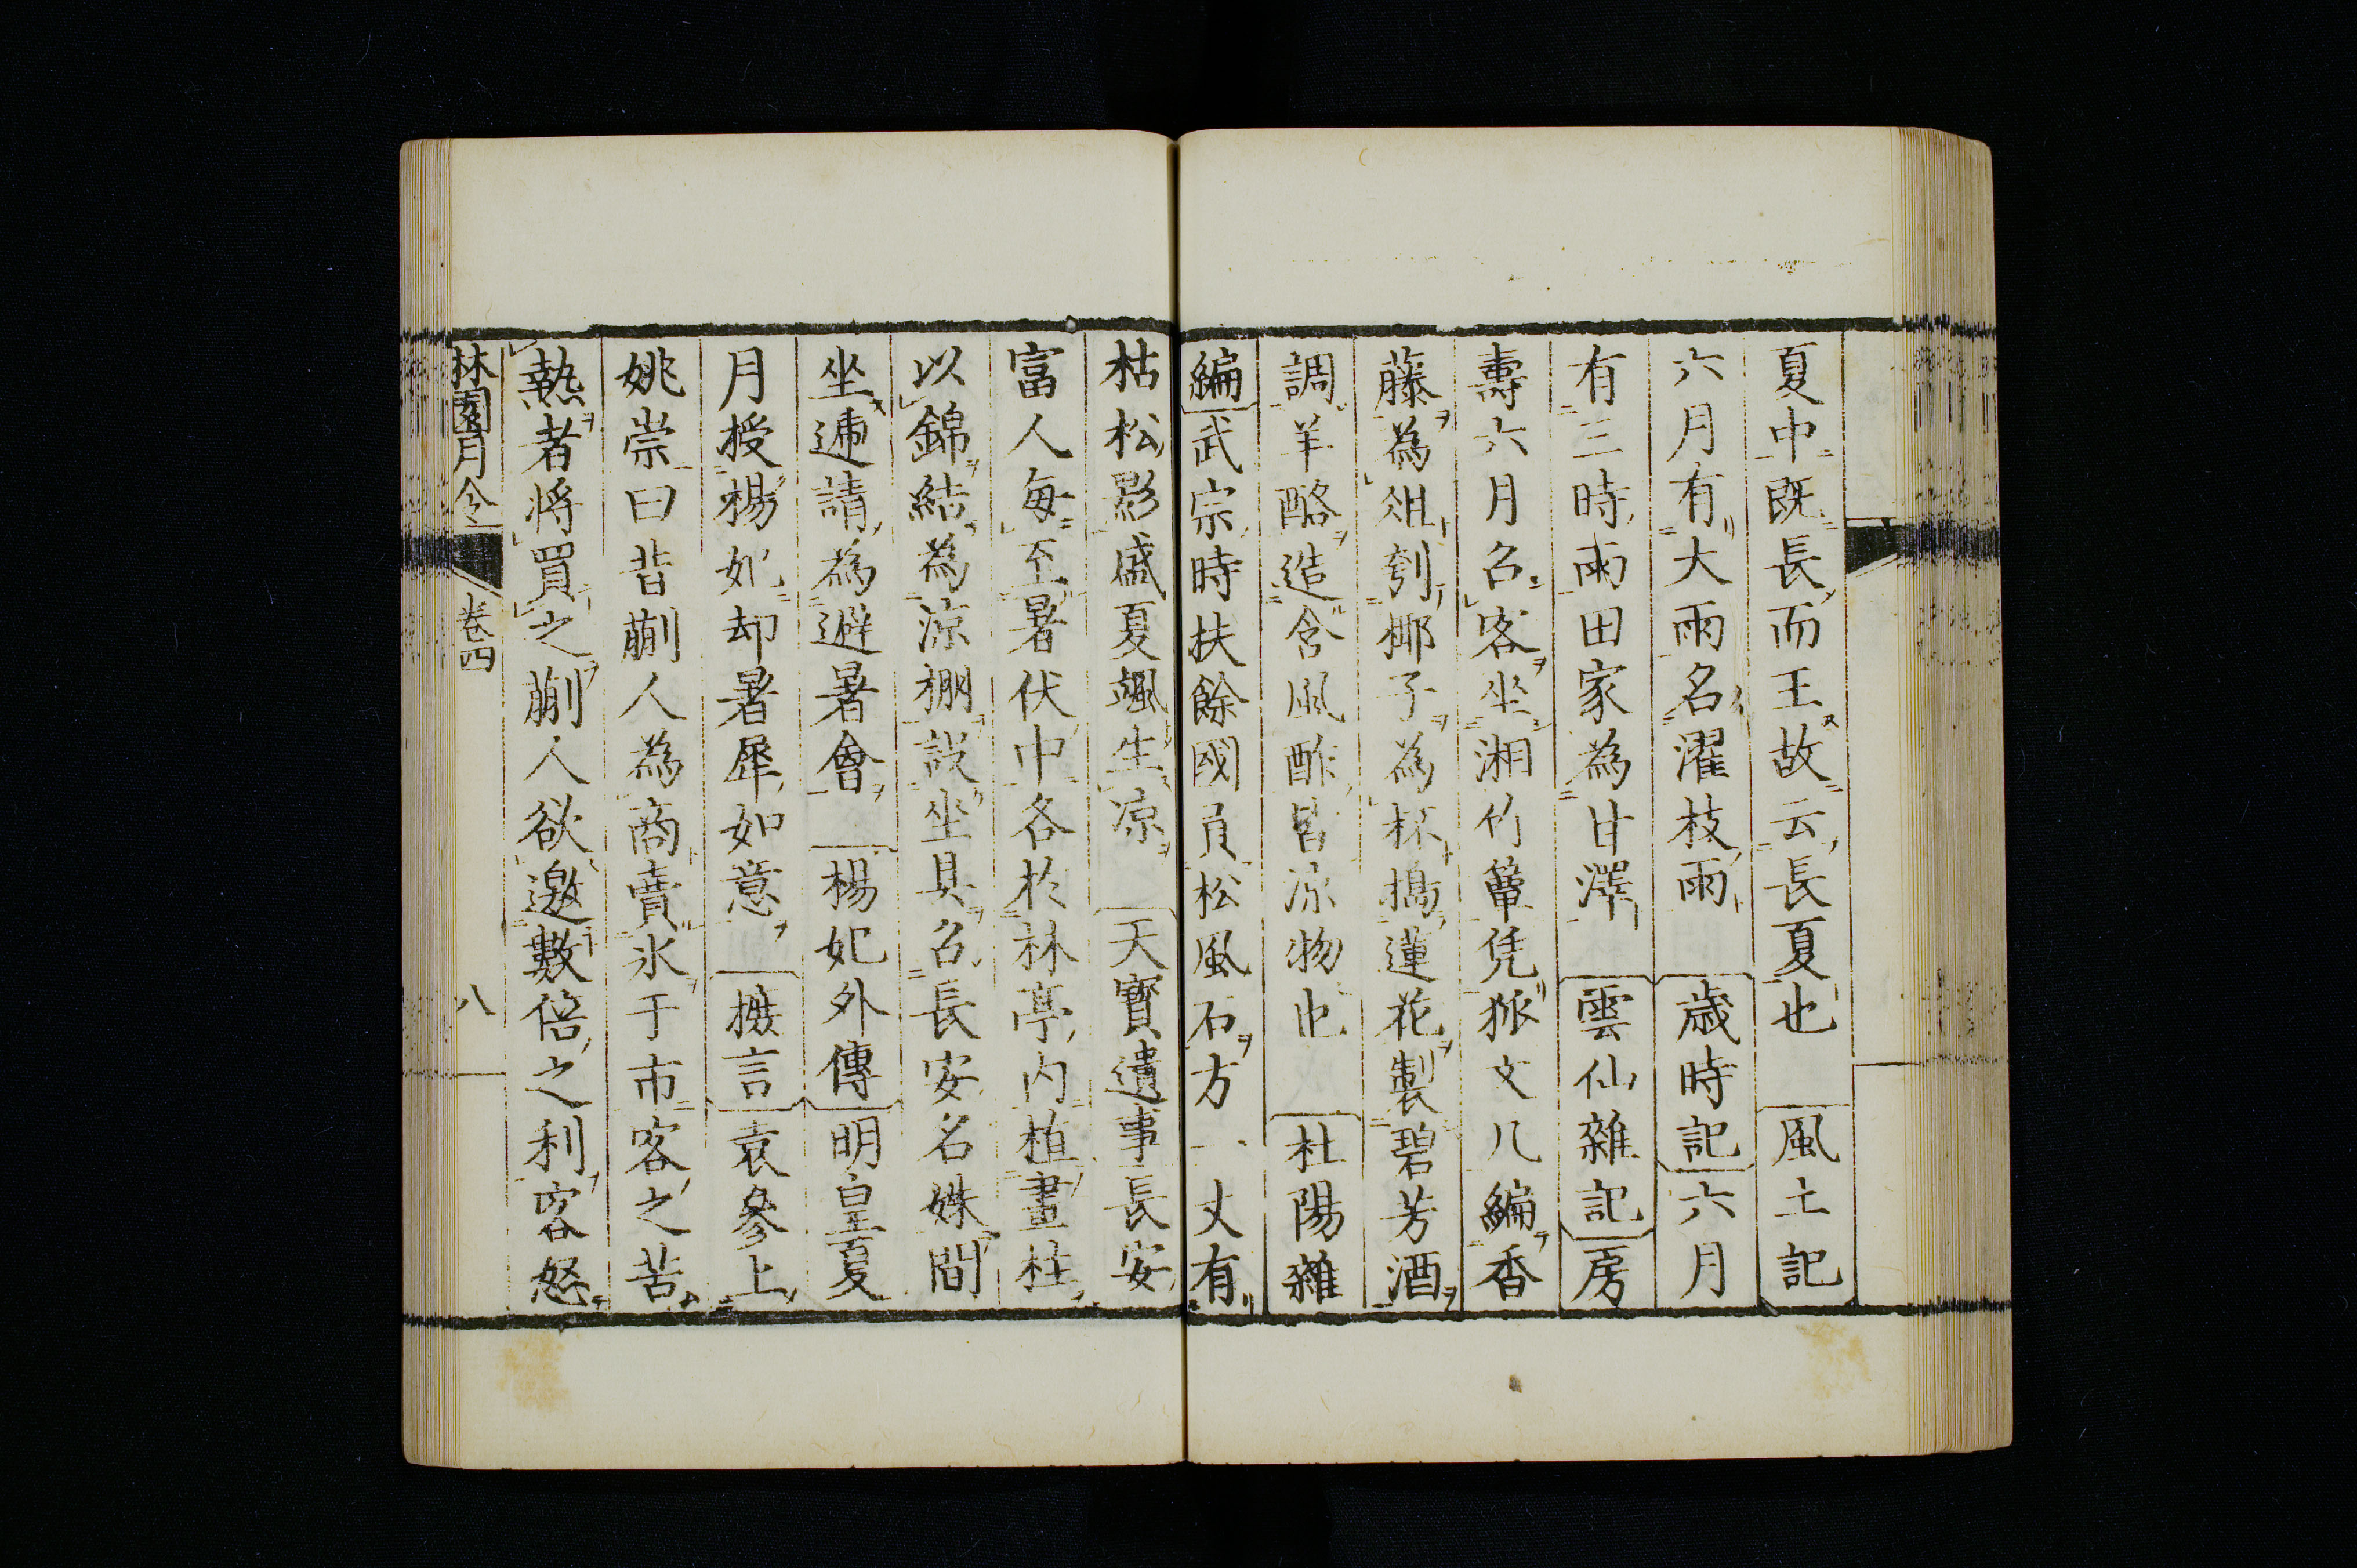 夏中既長而王故云長夏也 風土記
六月有大雨名濯枝雨 歳時記 六月
有三時雨田家為甘澤 雲仙雜記 房
壽六月召客坐湘竹簟凭狐文几編香
藤為俎刳椰子為杯搗蓮花製碧芳酒
調羊酪造含風酢皆凉物也 杜陽雜
編 武宗時扶餘國貢松風石方一丈有
枯松影盛夏颯生凉 天寳遺事 長安
富人每至暑伏中各於林亭内植畫柱
以錦結為凉棚設坐具召長安名姝間
坐逓請為避暑會 楊妃外傳 明皇夏
月授楊妃却暑犀如意 摭言 袁參上
姚崇曰昔蒯人為商賣氷于市客之苦
熱者将買之蒯人欲邀數倍之利客怒
林園月令 卷四 八